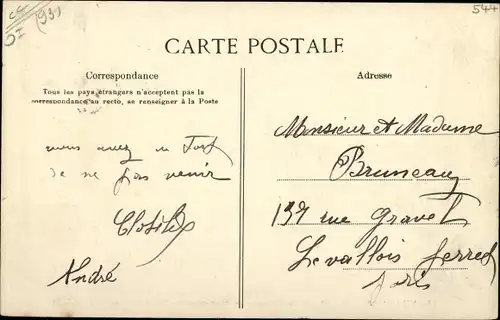 544
(93)
CARTE POSTALE
Correspondance
Tous les pays étrangers n'acceptent pas la
correspondance au recto, se renseigner à la Poste
vous avez eu Tort
de ne pas venir
Clotilde
André
Adresse
Monsieur et Madame
Bruneau
137 rue Gravel
Levallois Perret
Paris